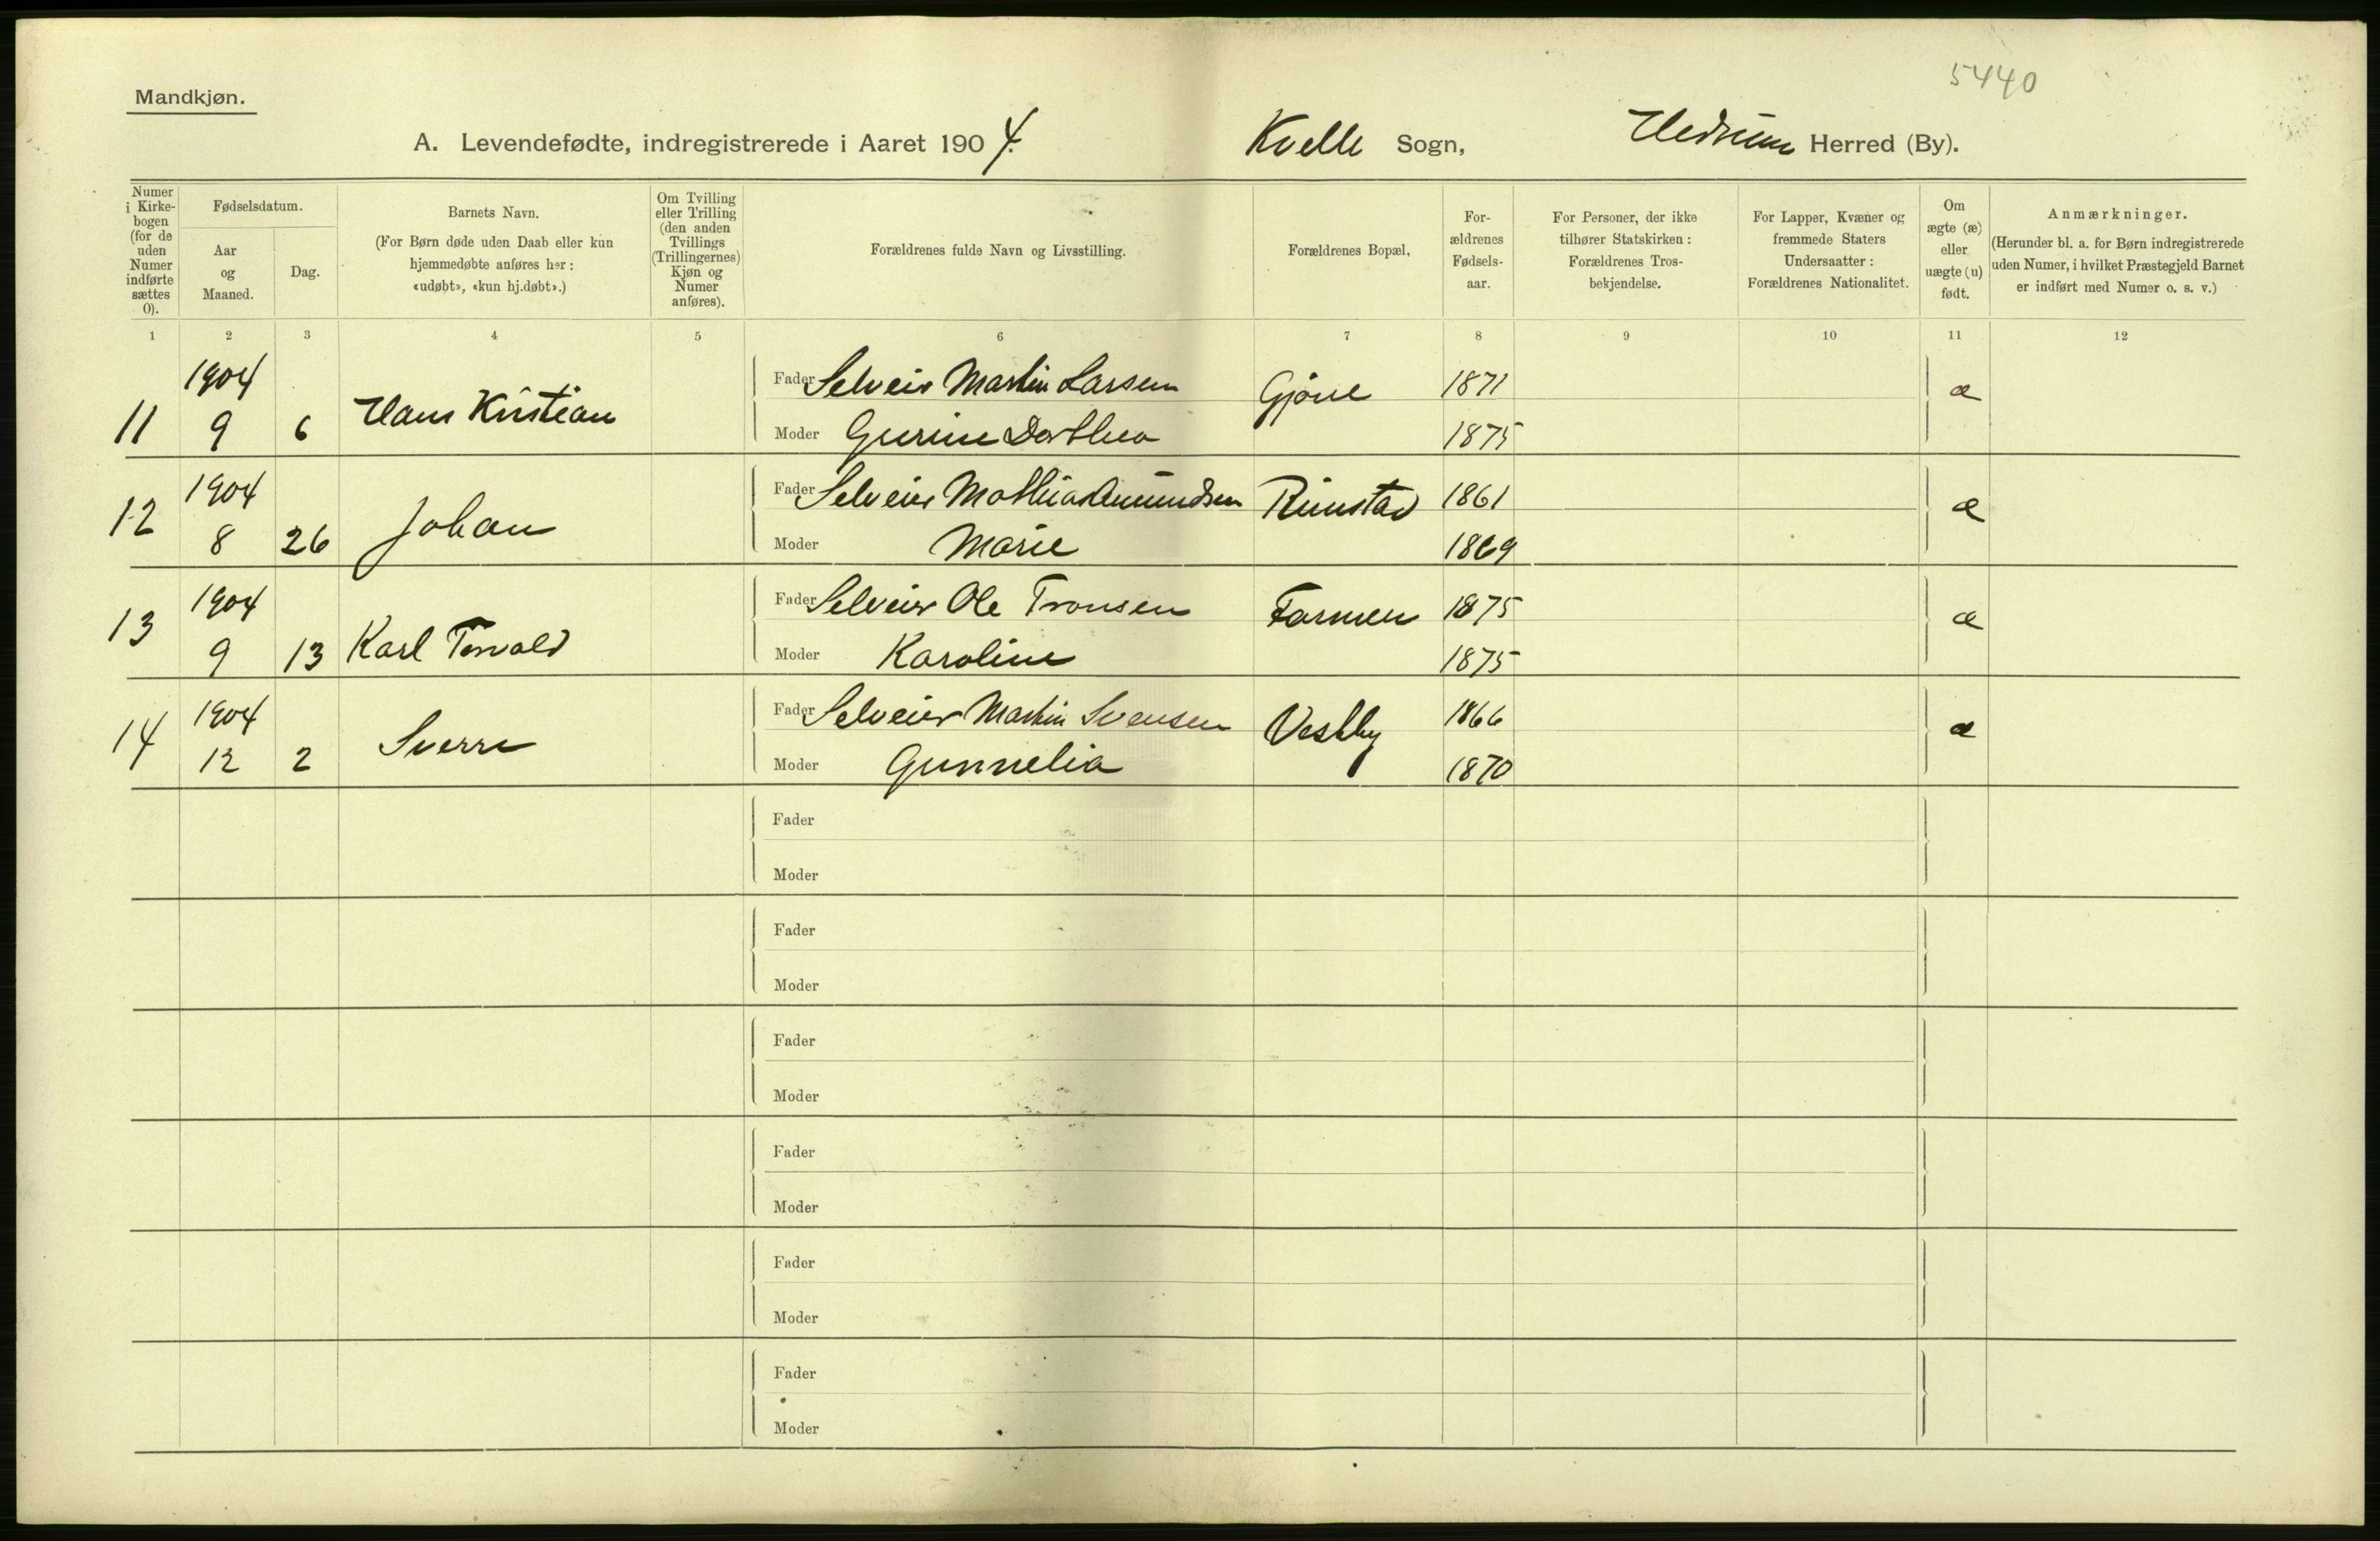 5440
Mandkjøn.
A. Levendefødte, indregistrerede i Aaret 1904. Kvelle Sogn, Hedrum Herred (By).
Numer i Kirke-bogen (for de uden Numer indførte sættes 0).
Fødselsdatum.
Aar og Maaned.
Dag.
Barnets Navn.
(For Børn døde uden Daab eller kun hjemmedøbte anføres her: «udøbt», «kun hj.døbt».)
Om Tvilling eller Trilling (den anden Tvillings (Trillingernes) Kjøn og Numer anføres).
Forældrenes fulde Navn og Livsstilling.
Forældrenes Bopæl,
For-ældrenes Fødsels-aar.
For Personer, der ikke tilhører Statskirken: Forældrenes Tros-bekjendelse.
For Lapper, Kvæner og fremmede Staters Undersaatter: Forældrenes Nationalitet.
Om ægte (æ) eller uægte (u) født.
Anmærkninger.
(Herunder bl. a. for Børn indregistrerede uden Numer, i hvilket Præstegjeld Barnet er indført med Numer o. s. v.)
1 2 3 4 5 6 7 8 9 10 11 12
1904 Fader Selveier Martin Larsen Gjone 1871 æ
11 9 6 Hans Kristian Moder Gurine Dorthea 1875
1904 Fader Selveier Mathias Amundsen Rimstad 1861 æ
12 8 26 Johan Moder Marie 1869
1904 Fader Selveier Ole Tronsen Farmen 1875 æ
13 9 13 Karl Torvald Moder Karoline 1875
1904 Fader Selveier Martin Svensen Vestby 1866 æ
14 12 2 Sverre Moder Gunnelia 1870
Fader
Moder
Fader
Moder
Fader
Moder
Fader
Moder
Fader
Moder
Fader
Moder